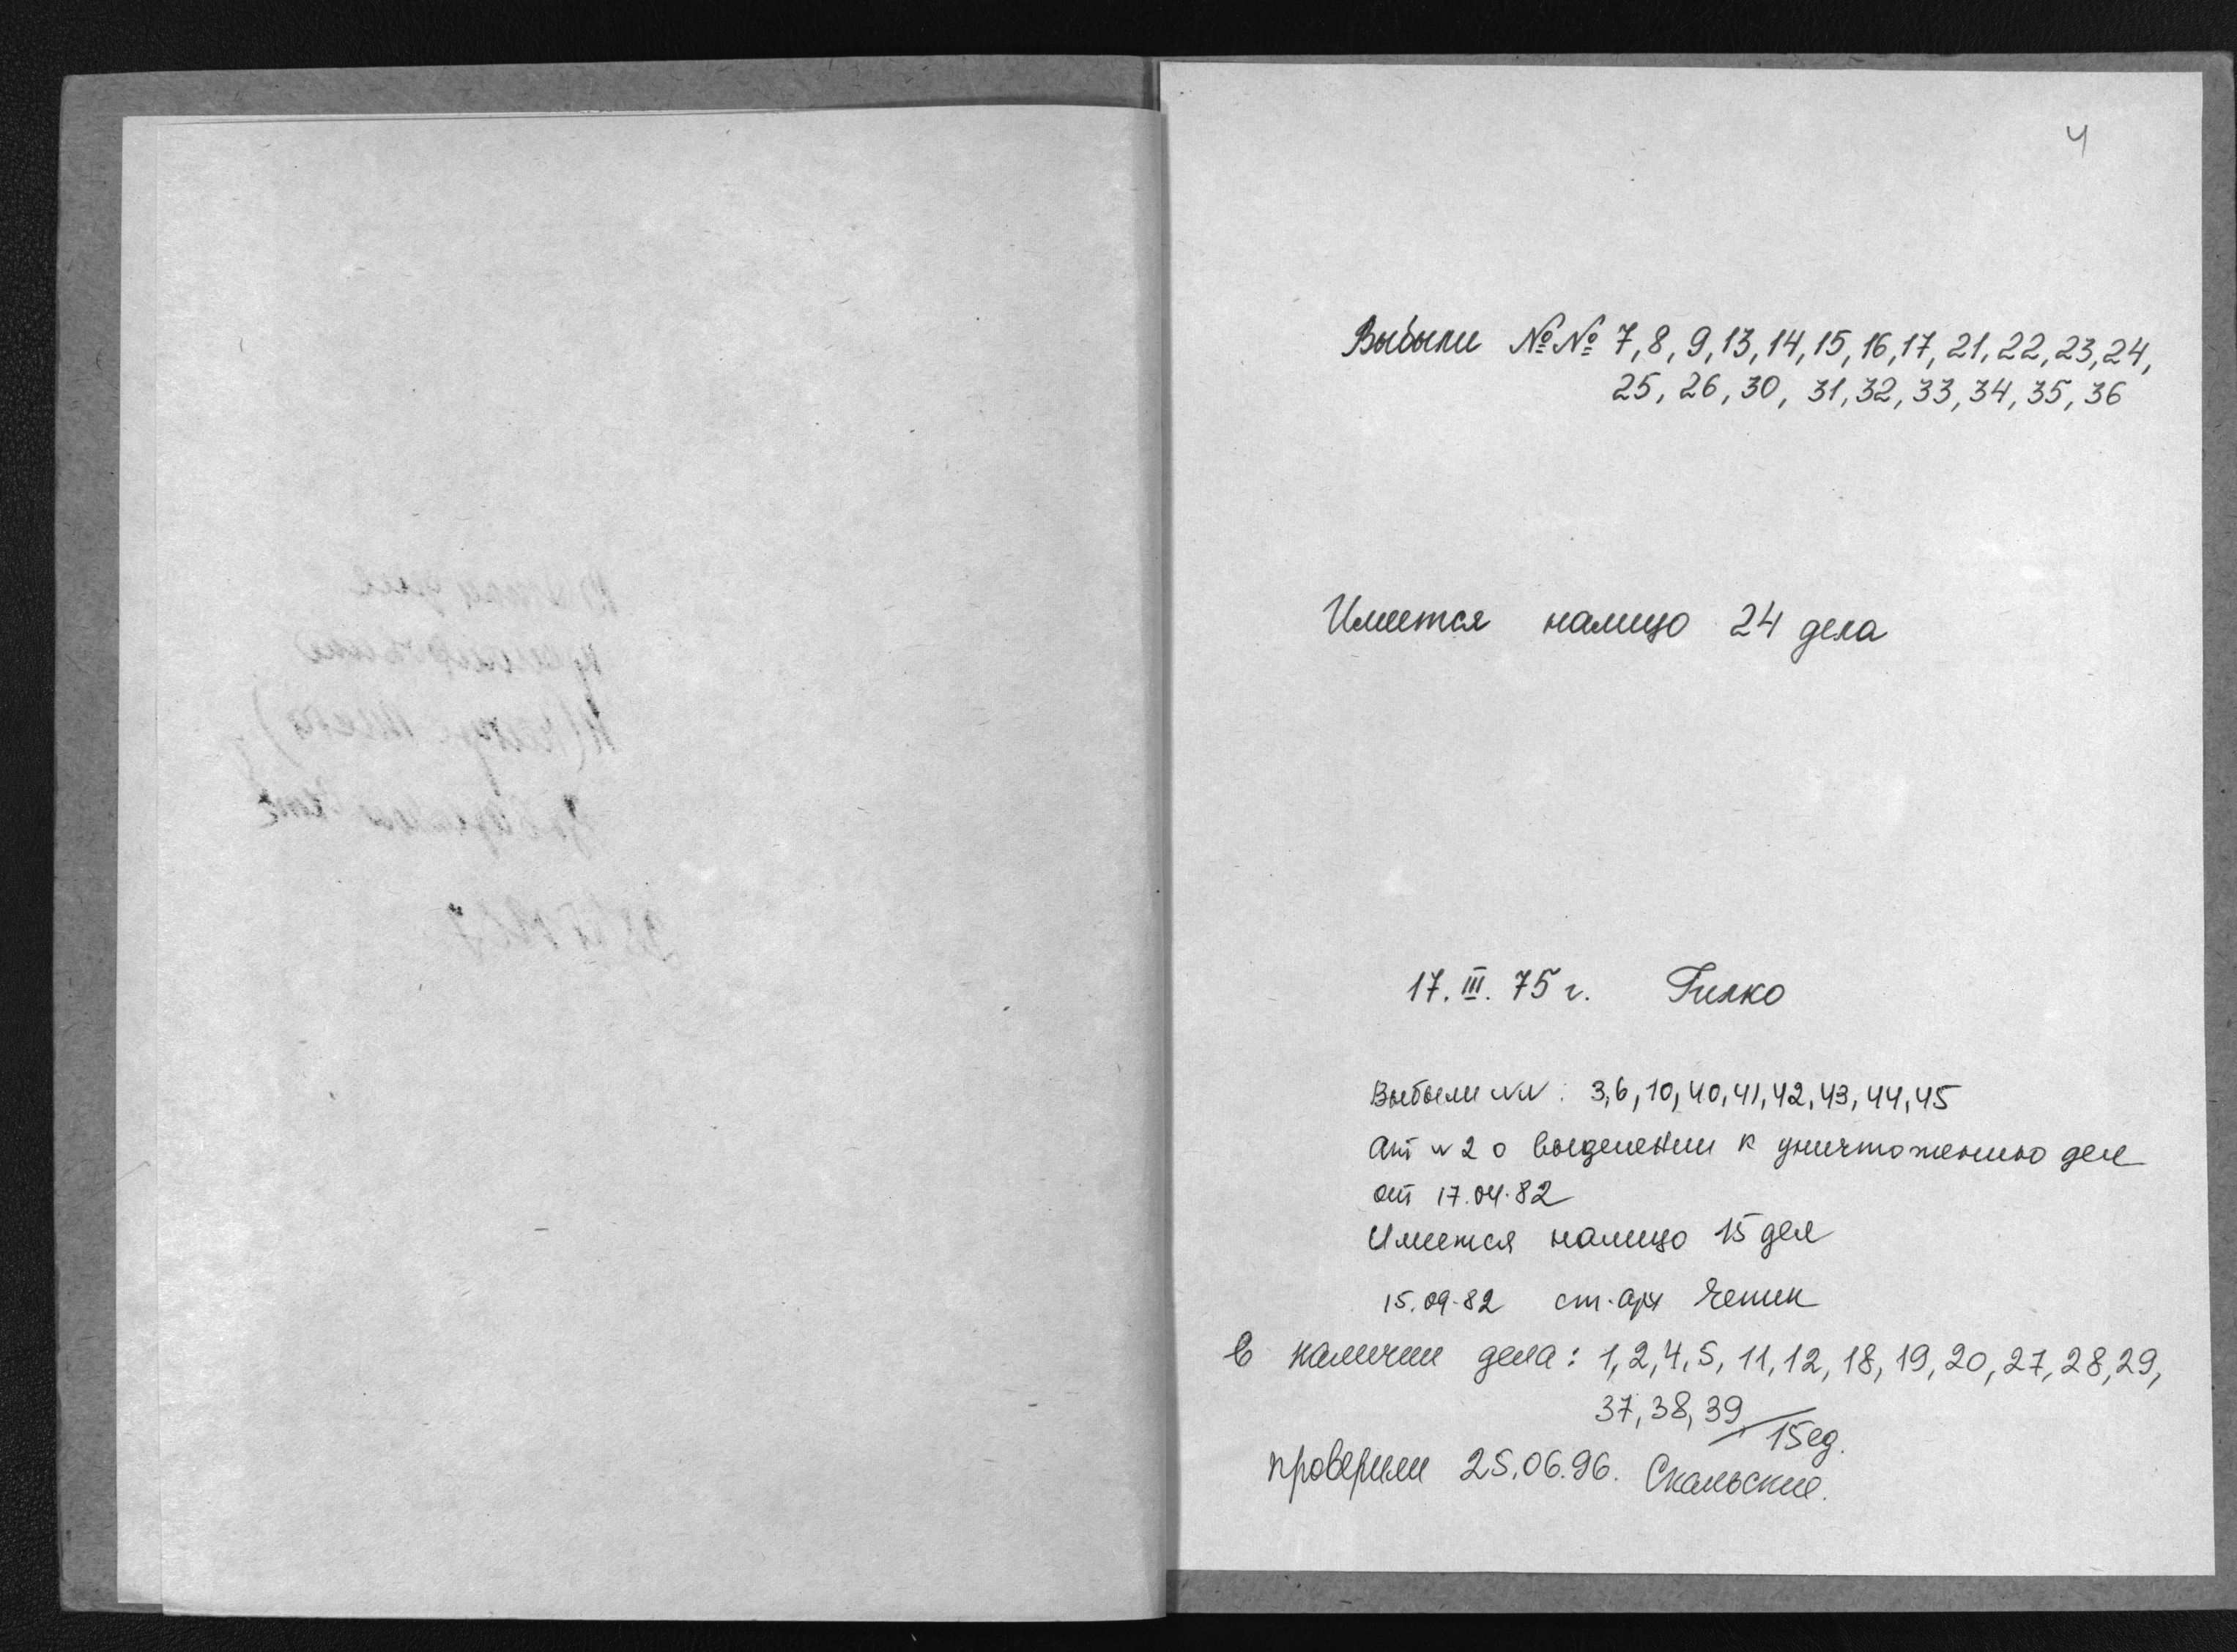 4
Выбыли №№ 7, 8, 9, 13, 14, 15, 16, 17, 21, 22, 23, 24,
25, 26, 30, 31, 32, 33, 34, 35, 36
Имеется налицо 24 дела
17. III. 75 г. Гилко
Выбыли NN : 3, 6, 10, 40, 41, 42, 43, 44, 45
Акт N 2 о выделении к уничтожению дел
от 17.04.82
Имеется налицо 15 дел
15.09.82 ст. арх
в наличии дела: 1, 2, 4, 5, 11, 12, 18, 19, 20, 27, 28, 29,
37, 38, 39 15 ед.
проверили 25.06.96.